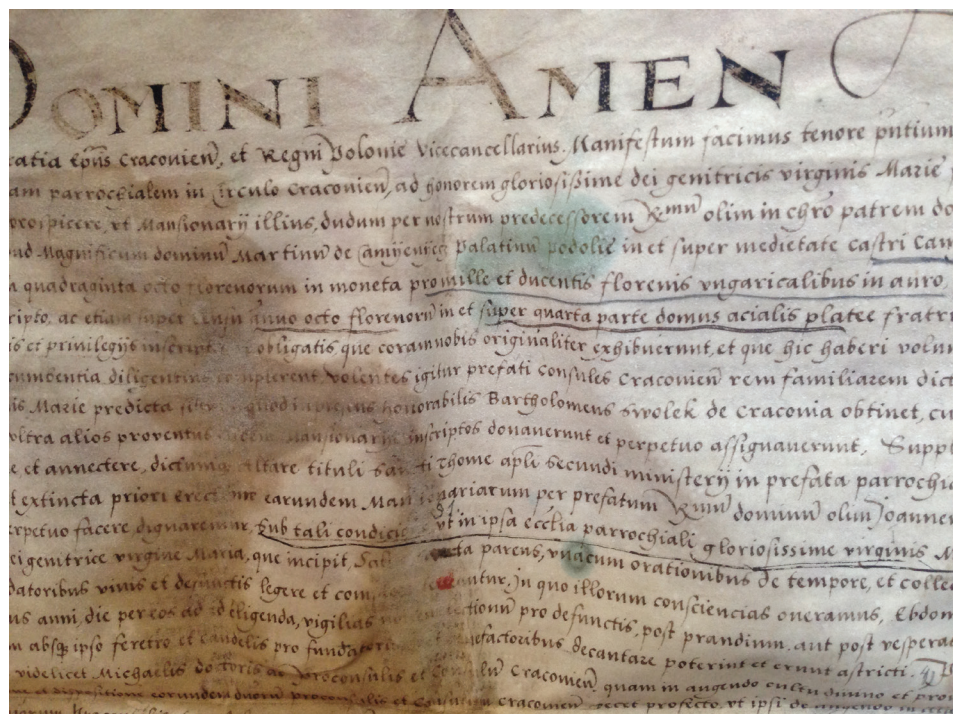 DOMINI AMEN
ratia epũs Cracovieñ, et Regni Polonie Vicecancellarius. Manifestum facimus tenore pñtium
am parrochialem in Circulo Cracovieñ, ad honorem gloriosissime dei genitricis virginis Marie
prospicere, vt Mansionarij illius, dudum per nostrum predecessorem Rmũ olim in chro patrem do
ud Magnificum dominũ Martinũ de Palatinũ podolie in et super medietate castri Cam
a quadraginta octo florenorum in moneta pro mille et ducentis florenis vngaricalibus in auro,
ripto, ac etiam super ãnuo octo florenorũ in et super quarta parte domus acialis platee fratr
is et privilegijs inscript obligatis que coram nobis originaliter exhibuerunt, et que hic haberi volu
cumbentia diligentius complerent, volentes igitur prefati Consules Cracovieñ rem familiarem dict
is Marie predicta quod in presens honorabilis Bartholomeus Swolek de Cracovia obtinet, cu
vltra alios proventus eisdem Mansionarijs inscriptos donaverunt et perpetuo assignaverunt, Suppl
e et annectere, dictumq altare tituli Sancti Thome apli Secundi ministerij in prefata parrochi
t extincta priori erectione earundem Mansionariarum per prefatum Rmũ dominum olim Joannem
erpetuo facere dignaremur, Sub tali condicione vt in ipsa ecclia parrochiali gloriosissime virginis M
ei genitrice virgine Maria, que incipit, Salve sancta parens, vnacum orationibus de tempore, et collec
datoribus vivis et defunctis legere et com tenebuntur, in quo illorum consciencias oneramus, Ebdom
us anni, die per eos ad id eligenda, vigilias lectionũ pro defunctis, post prandium, aut post vespera
m absq ipso feretro et candelis pro fundatori benefactoribus decantare poterint et erunt astricti.
videlicet Michaelis doctoris ac proconsulis et Consulũ Cracovieñ, quam in augendo cultu divino et pro
m et dispositione eorundem dnorũ proconsulis et Consulum Cracovieñ decet profecto, vt ipsi de augendo